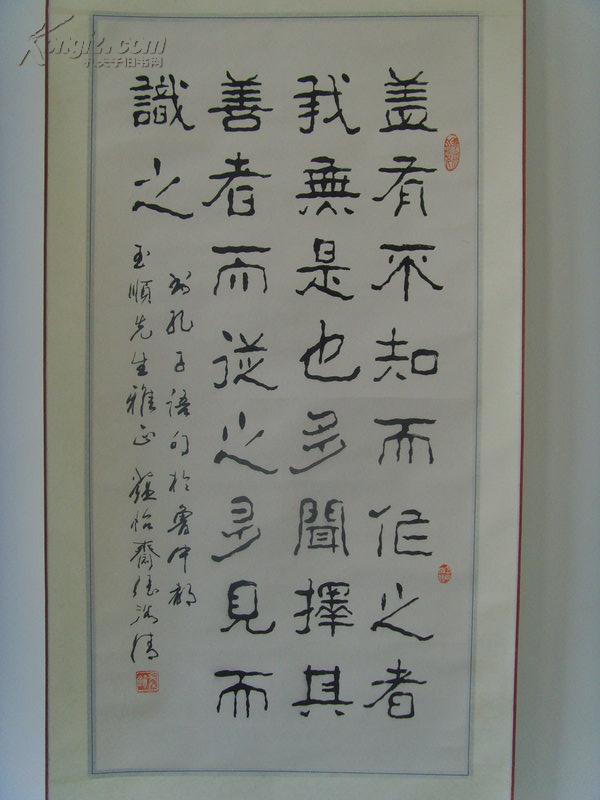 盖有不知而作之者
我無是也多聞擇其
善者而從之多見而
識之
書孔子語句於魯中都
玉順先生雅正 蘊怡齋
Kongfz.com
孔夫子旧书网